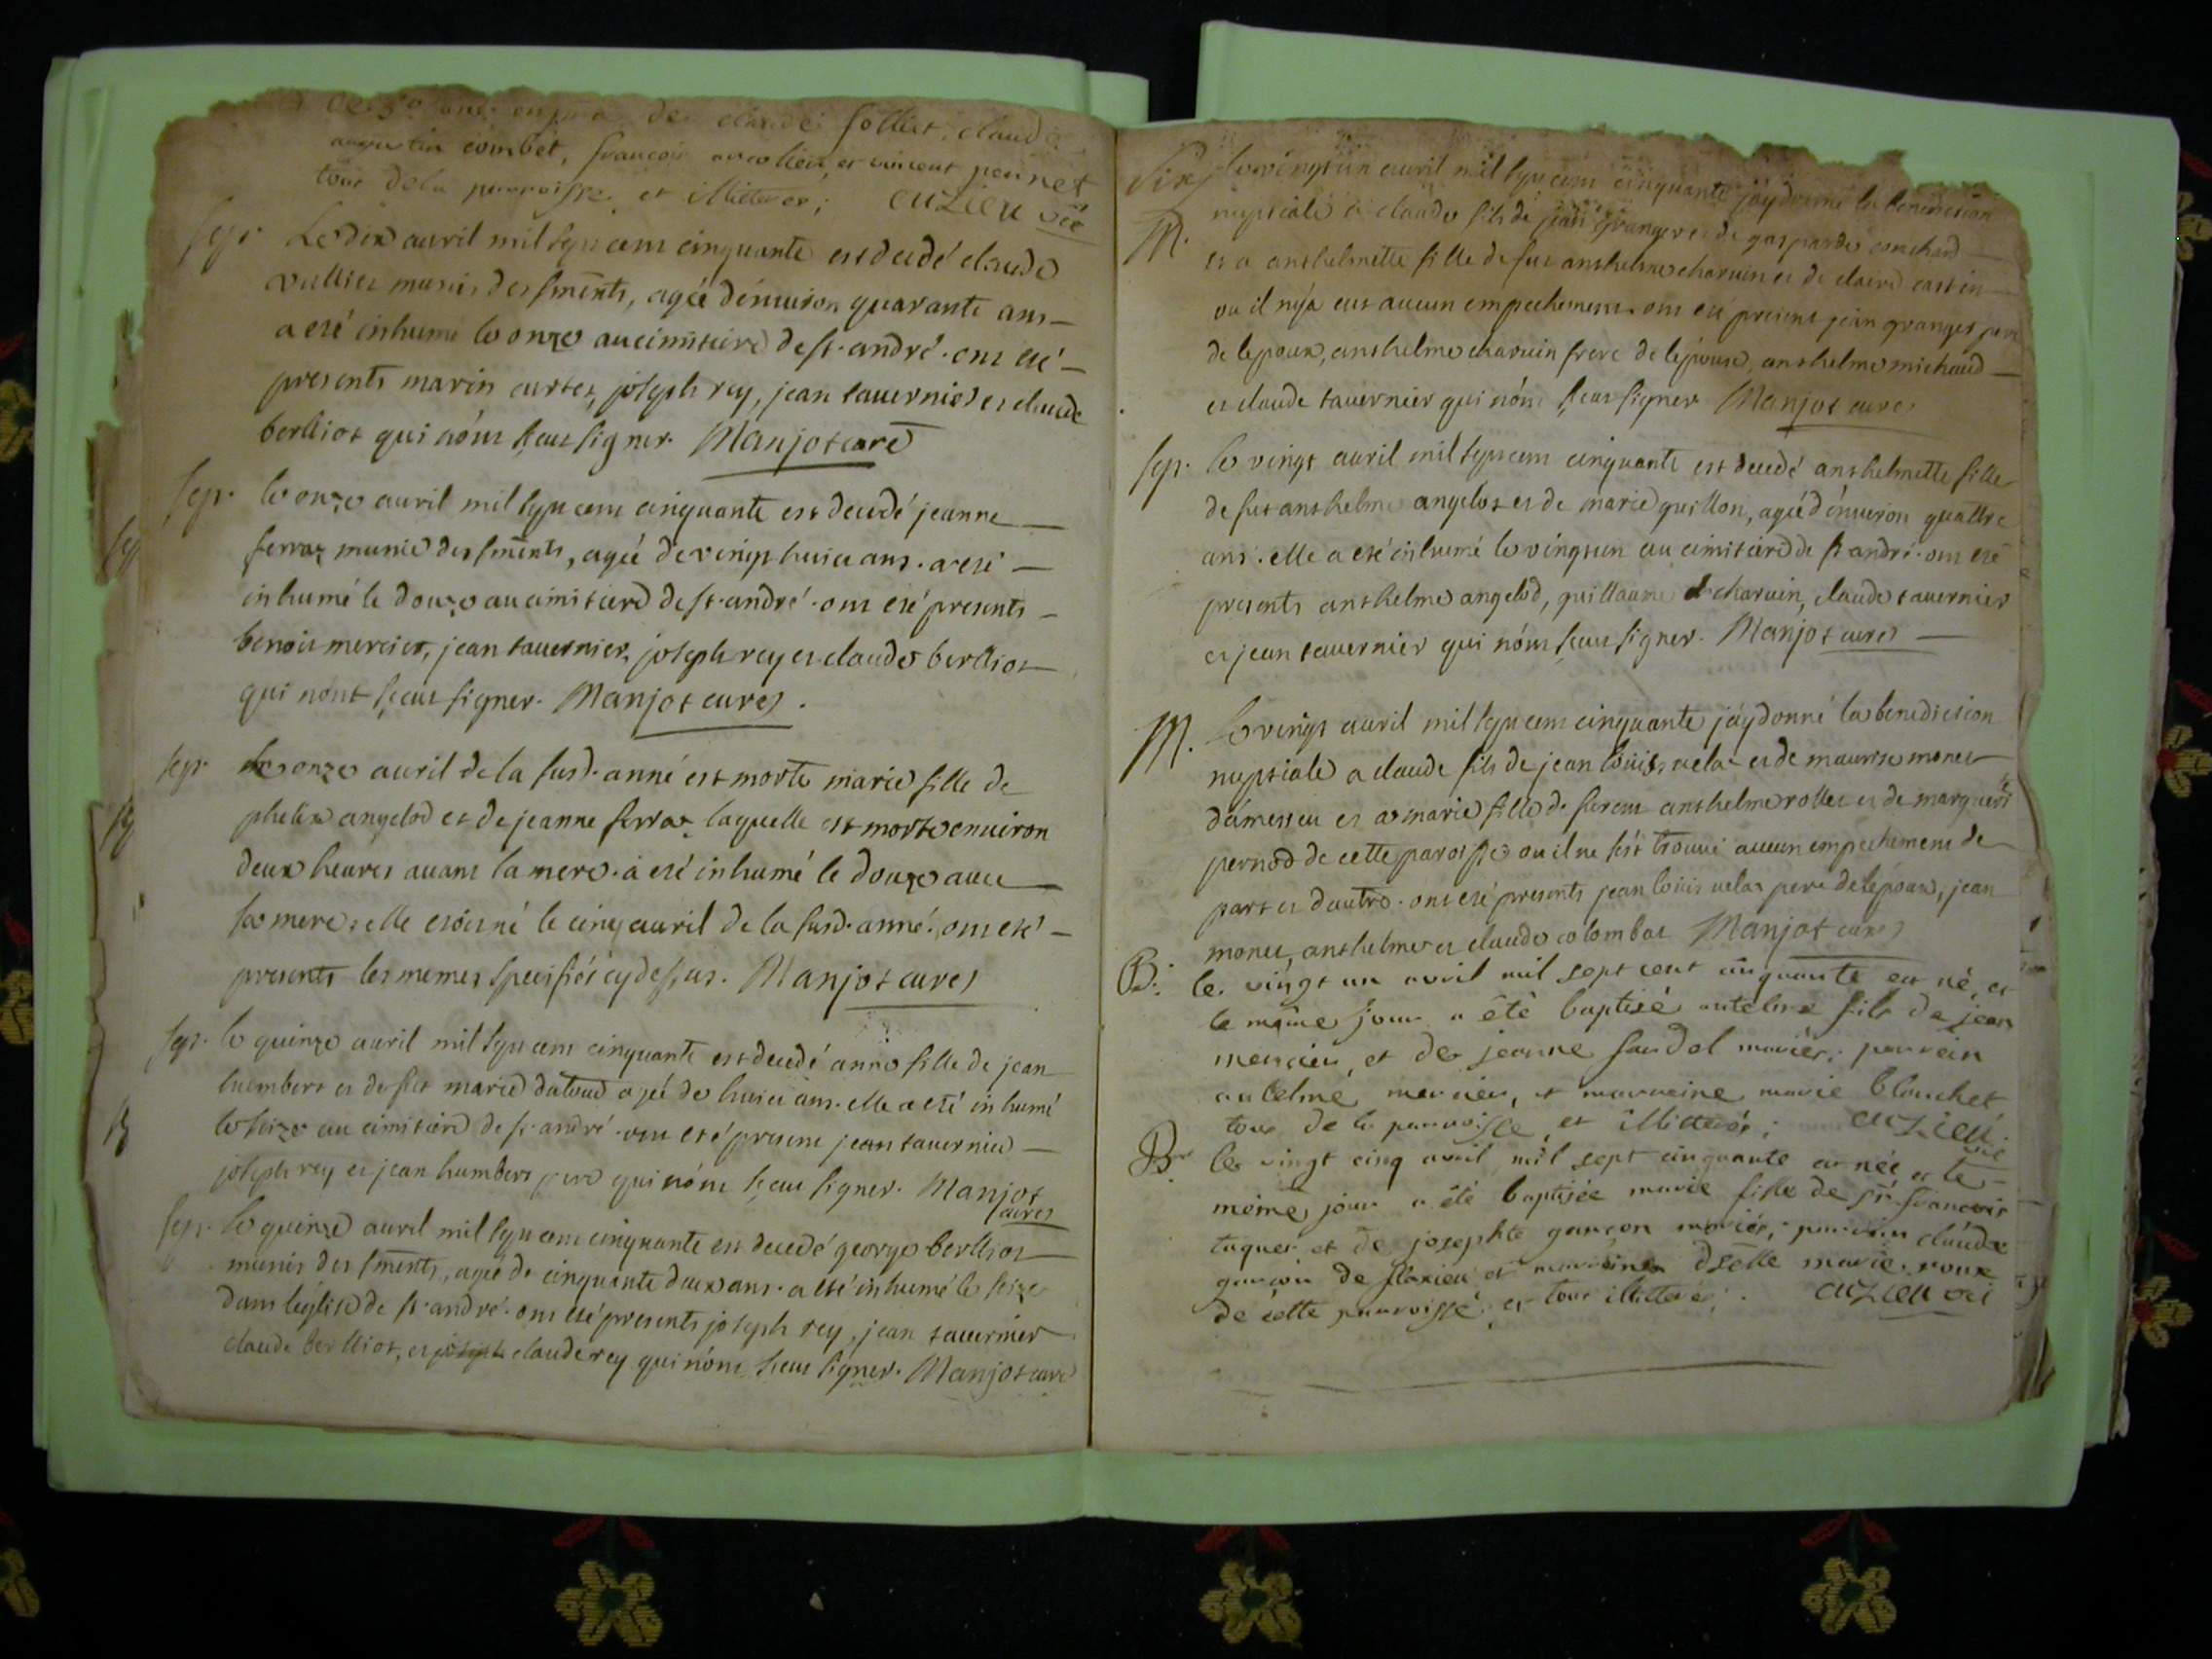 de claude sollier, claude
augustin combet, françois et vincent perret
tous de la parroisse et illitteres; cuzieu vic
sep. Le dix avril mil sept cens cinquante est decedé claude
vullier munis des smënts, agée d'environ quarante ans —
a eté inhumé le onze au cimitiere de st. andré. ont eté —
presents marin curtet, joseph rey, jean tavernier et claude
berlliot qui nónt sçeut signer. Manjot curé
sep. le onze avril mil sept cens cinquante est decedé jeanne —
ferraz munie des smënts, agée de vingt huict ans. a eté —
inhumé le douze au cimitiere de st. andré. ont eté presents —
benoit mercier, jean tavernier, joseph rey et claude berlliot
qui nónt sçeut signer. Manjot curé.
sep. le onze avril de la susd. anné est morte marie fille de
phelix angelod et de jeanne ferraz laquelle est morte environ
deux heures avant la mere. a eté inhumé le douze avec —
sa mere; elle etóit né le cinq avril de la susd. anné. ont eté —
presents les memes specifiés cy dessus. Manjot curé
sep. le quinze avril mil sept cens cinquante est decedé anne fille de jean
humbert et de fut marie agé de huict ans. elle a eté inhumé
le seize au cimitiere de st. andré. ont eté present jean tavernier —
joseph rey et jean humbert pere qui nónt sçeut signer. Manjot
curé
sep. le quinze avril mil sept cens cinquante est decedé george berlliot
munis des smënts, agée de cinquante deux ans. a eté inhumé le seize
dans leglise de st. andré. ont eté presents joseph rey, jean tavernier
claude berlliot, et joseph claude rey qui nónt sçeut signer. Manjot curé
Six le vingt un avril mil sept cens cinquante jáy donné la benediction
M. nuptiale à claude fils de jean granger et de gasparde conchard —
et a anthelmette fille de fut anthelme charvin et de claire castin —
ou il ny a eut aucun empechement. ont eté present jean granger pere
de lepoux, anthelme charvin frere de lépouse, anthelme michaud —
et claude tavernier qui nónt sçeut signer Manjot curé
sep. le vingt avril mil sept cens cinquante est decedé anthelmette fille
de fut anthelme angelot et de marie guillon, agée d'environ quattre
ans. elle a eté inhumé le vingt un au cimitiere de st andré. ont eté
presents anthelme angelod, guillaume charvin, claude tavernier
et jean tavernier qui nónt sçeut signer. Manjot curé —
M. le vingt avril mil sept cens cinquante jáy donné la benediction
nuptiale a claude fils de jean loüis velat et de maurise monet
dámeseu et a marie fille de feremt anthelme rollet et de marguerite
pernod de cette paroisse ou il ne s'est trouvé aucun empechement de
part et dautre. ont eté presents jean loüis velat pere de lépoux, jean
monet, anthelme et claude colombat Manjot curé
B. le vingt un avril mil sept cent cinquante est né, et
le même jour a été baptisé antelme fils de jean
mercier, et de jeanne mariés; parrein
antelme mercier, et marreine marie blanchet
tous de la parroisse, et illitterés; cuzieu
vic
B. le vingt cinq avril mil sept cinquante est née et le
même jour a été baptisée marie fille de sr. françois
et de josephte garçon mariés; parrein claude
garçon de flaxieu et marreine dselle marie roux
de cette parroisse, et tous illitterés; cuzieu vic